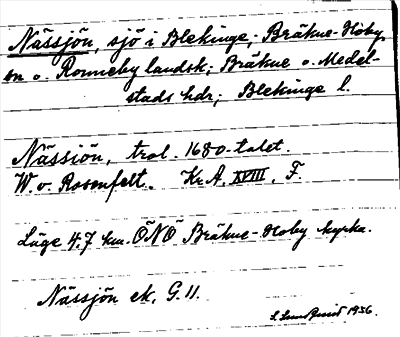 Nässjön, sjö i Blekinge; Bräkne-Hoby
sn o. Ronneby landsk; Bräkne o. Medel-
stads hdr; Blekinge l.
Nässiön, trol. 1680-talet.
W. v. Rosenfelt. Kr. A. XVIII. F.
Läge 4,7 km. ÖNÖ Bräkne-Hoby kyrka.
Nässjön ek. G. 11.
S. Sundquist 1936.